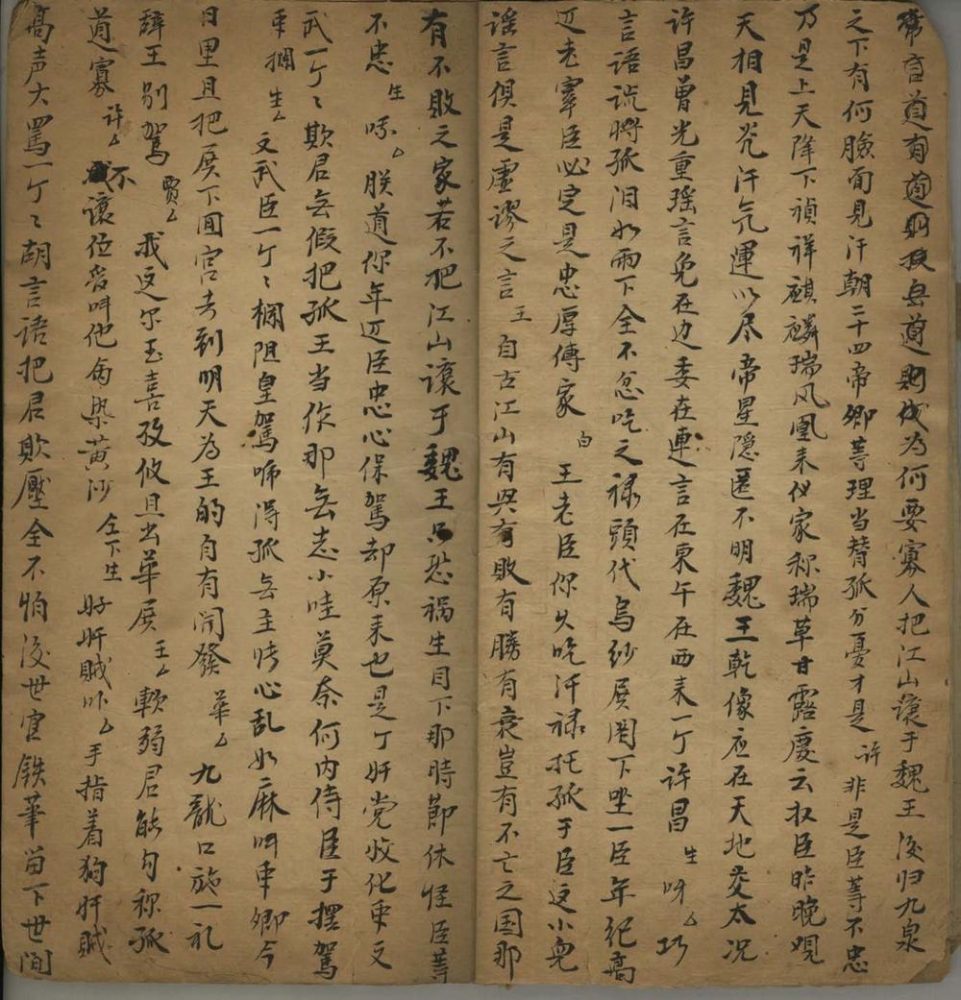 常言道有道則扶無道則伐為何要寡人把江山讓于魏王後归九泉
之下有何臉面見汗朝二十四帝卿等理当替孤分憂才是許非是臣等不忠
乃是上天降下禎祥麒麟瑞凤凰来仪家称瑞草甘露慶云扒臣昨晚观
天相見炎汗气運以尽帝星隐匿不明魏王乾像应在天地交太况
许昌曾光重瑶言兔在边委在連言在東午在西来一丁许昌生呀么巧
言語说將孤泪如雨下全不念吃之禄頭代烏纱殿阁下坐一臣年纪高
迈老宰臣必定是忠厚傳家白王老臣你久吃汗禄托孤于臣这小兔
谣言俱是虚谬之言王自古江山有兴有敗有勝有衰豈有不亡之国那
有不敗之家若不把江山讓于魏王只恐禍生目下那時節休怪臣等
不忠生咳么朕道你年迈臣忠心保駕却原来也是丁奸党牧化朿文
武一丁丁欺君無假把孤王当作那無志小哇莫奈何内侍臣于摆駕
朿擱生么文武臣一丁丁欄阻皇駕啼得孤無主恃心乱如麻叫朿卿今
日里且把殿下囬宫去到明天為王的自有開發華么九龍口施一礼
辞王别駕賈么我这尔玉喜孜攸且出華殿王么軟弱君能句称孤
道寡許么不讓位管叫他命染黄沙仝下生好奸贼吓么手指着狗奸贼
高声大罵一丁丁胡言語把君欺壓全不怕後世官鉄筆留下世间